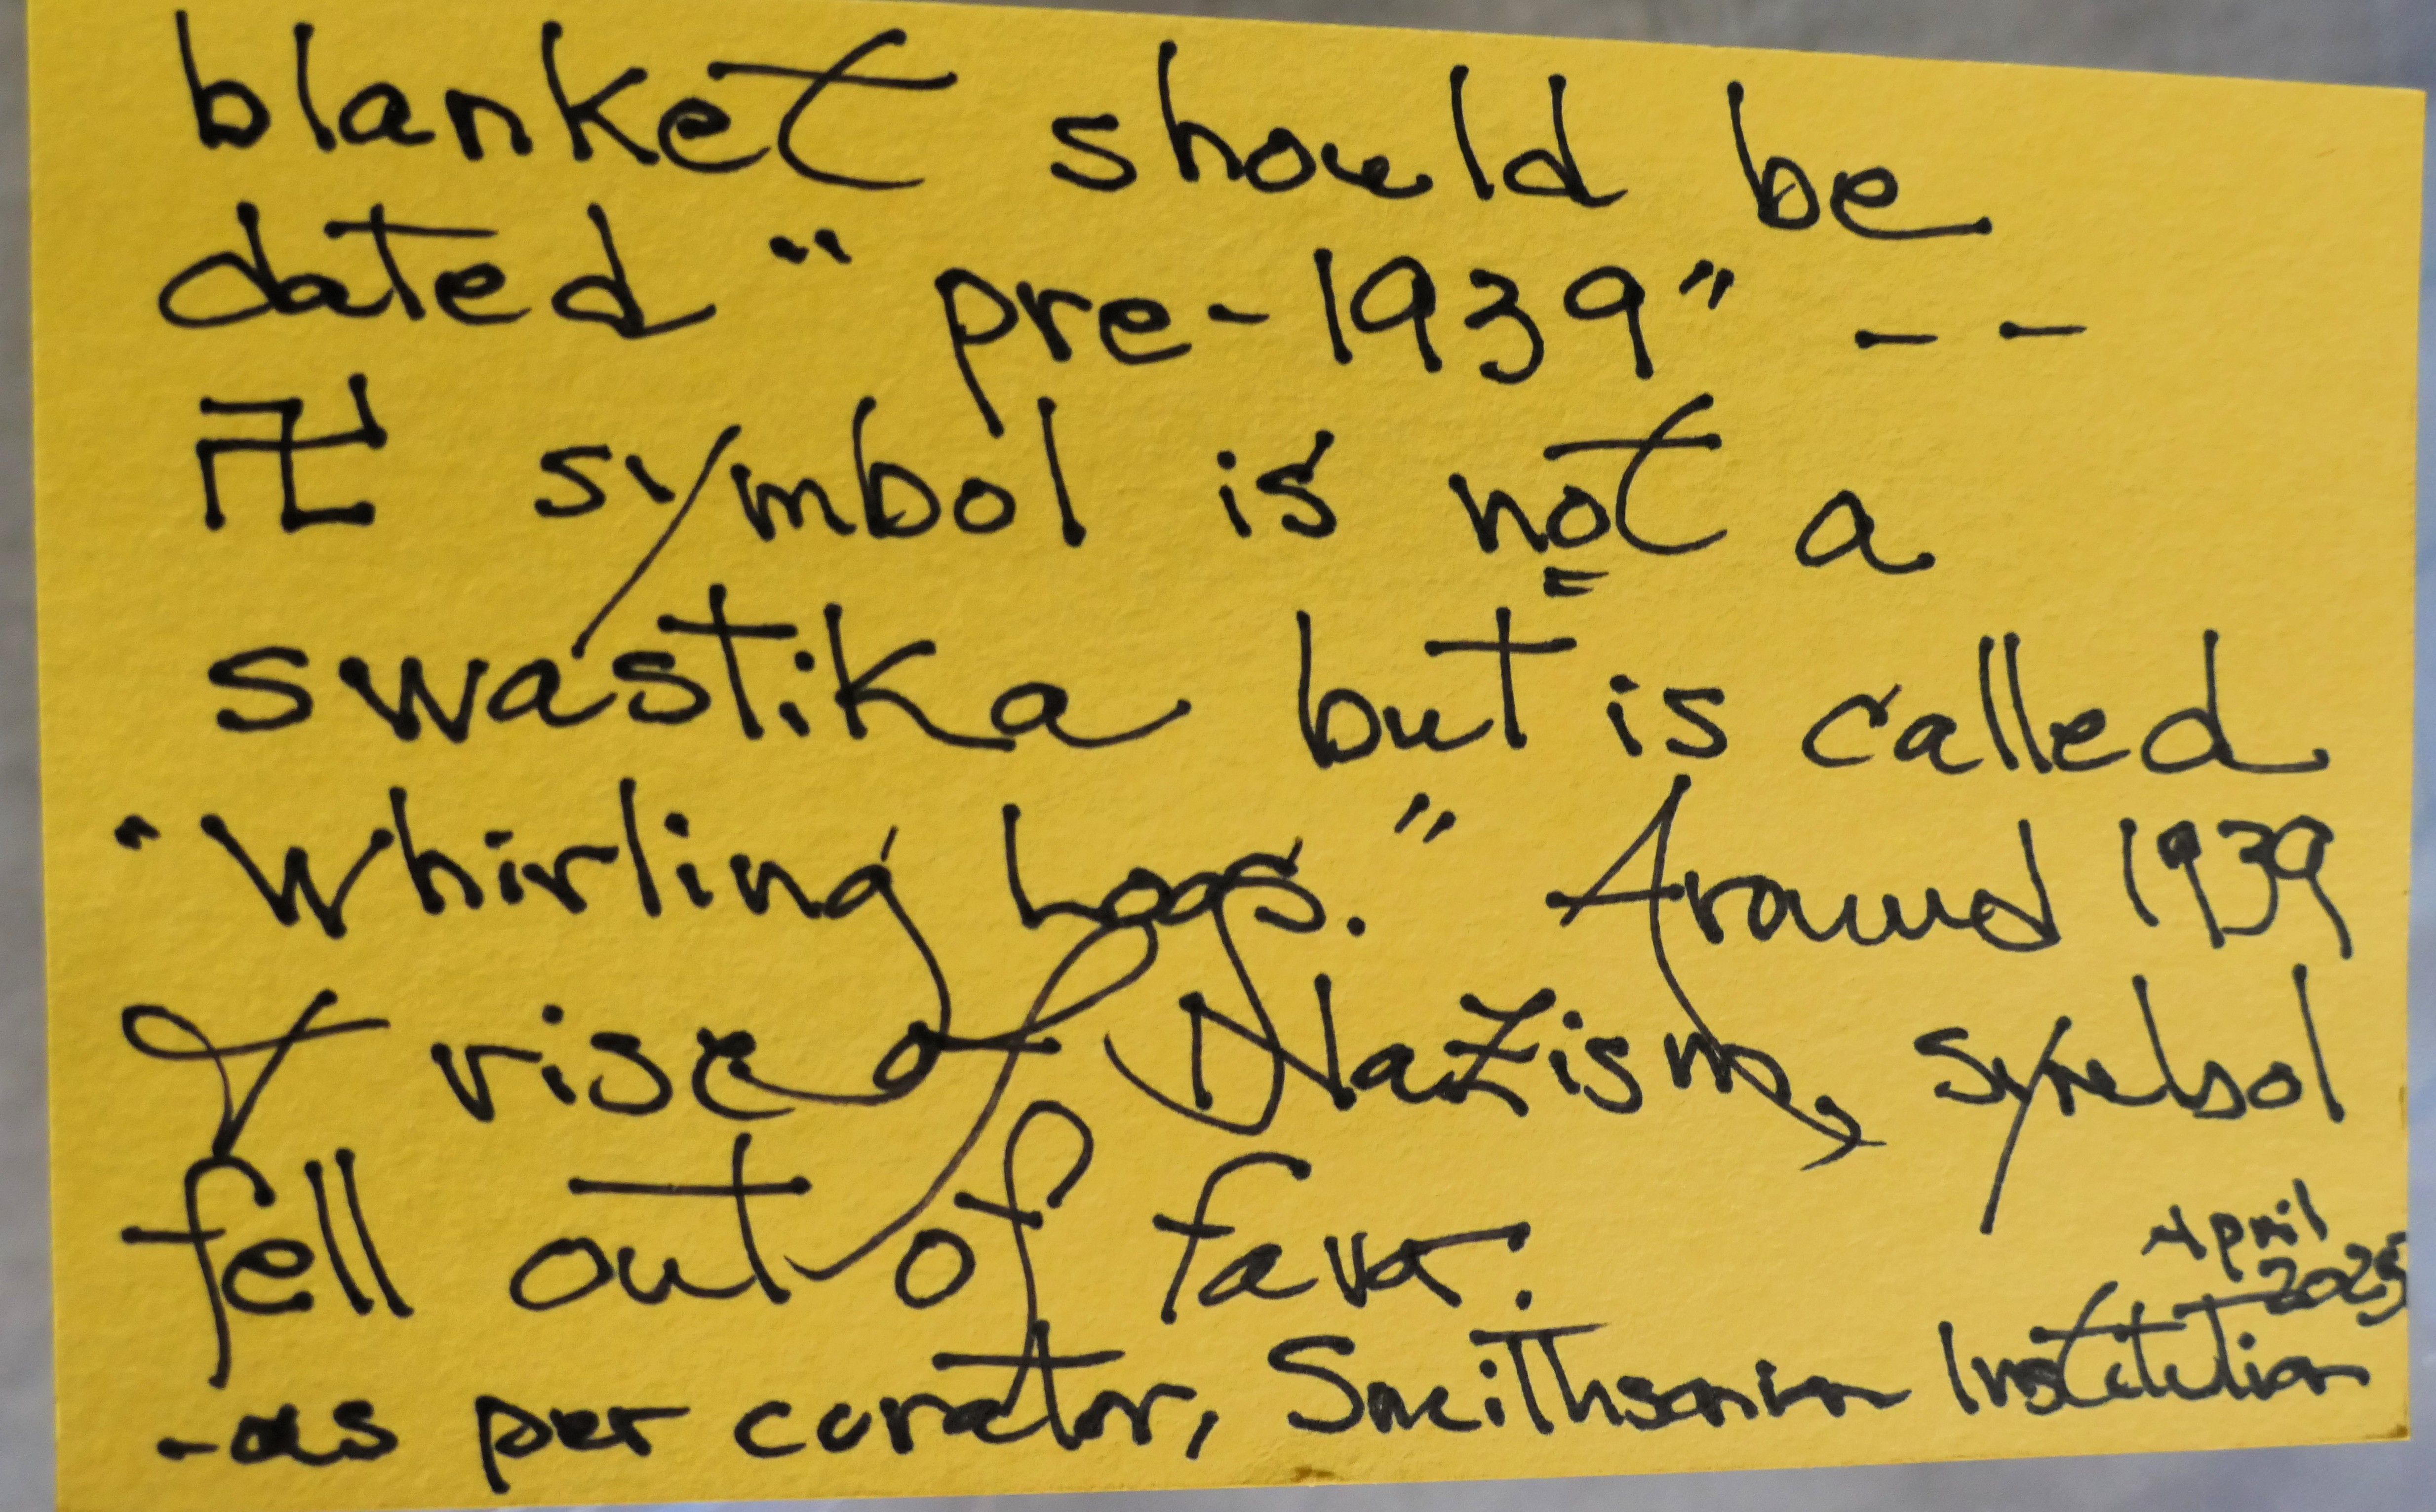 blanket should be
dated "pre-1939" --
卍 symbol is not a
swastika but is called
"Whirling Logs." Around 1939
& rise of Nazism, symbol
fell out of favor.
April
2025
-as per curator, Smithsonian Institution